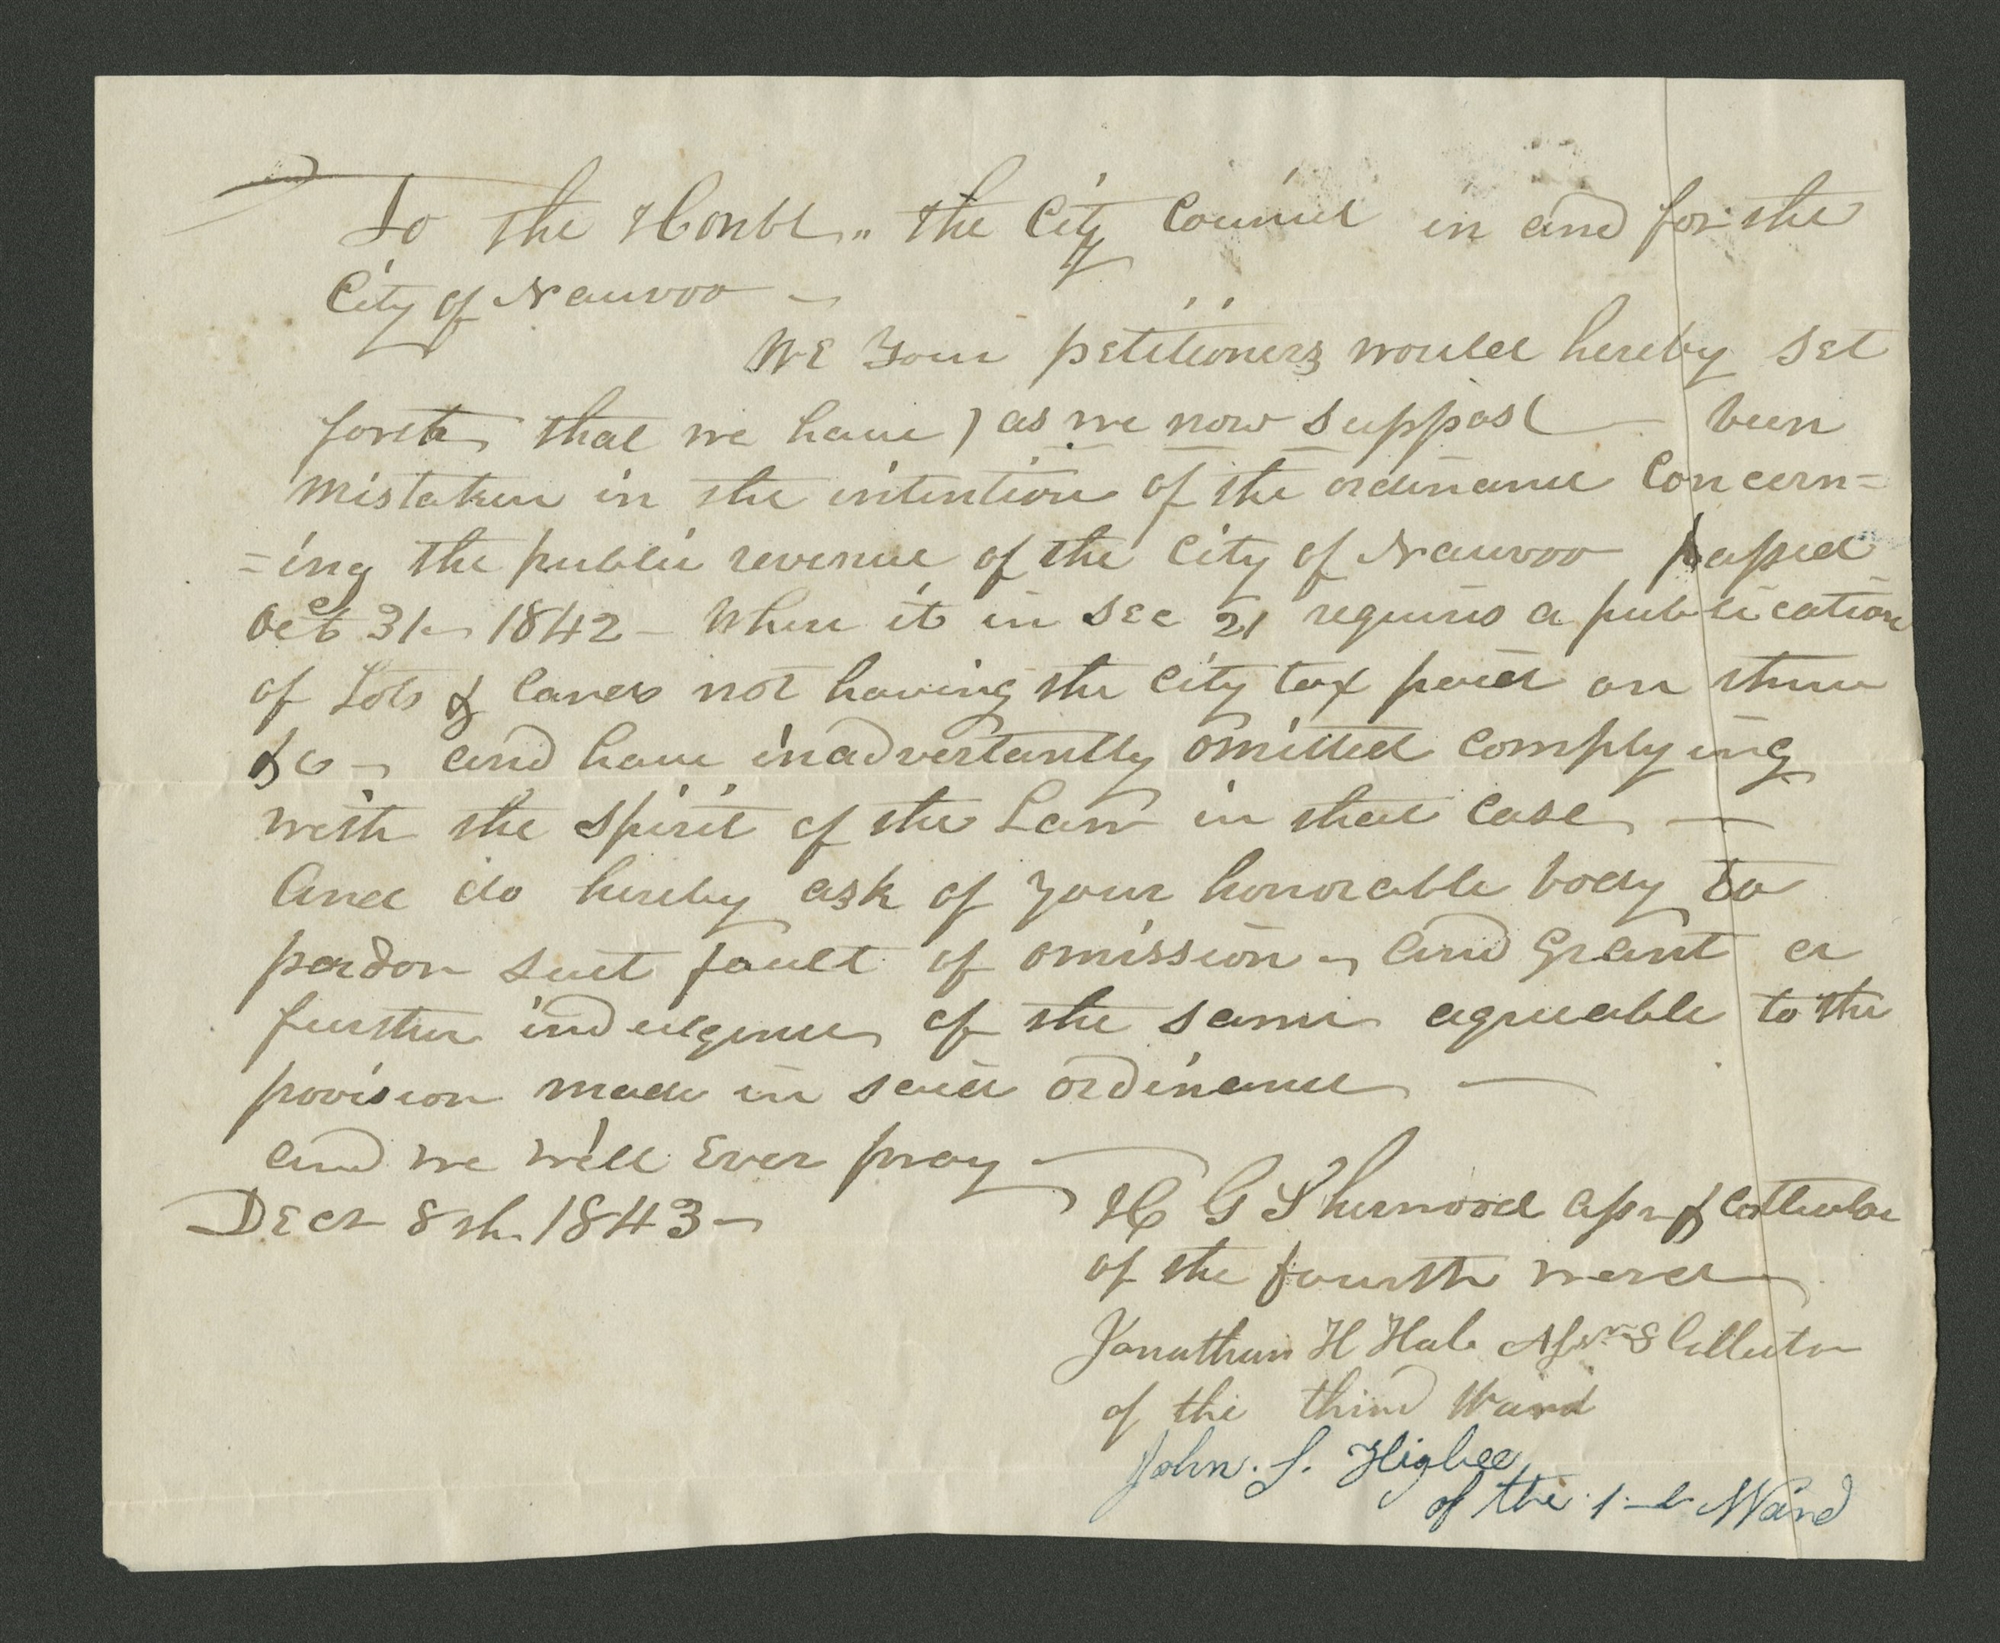 To the Honbl,, the City Council in and for the
City of Nauvoo —
We Your petitioners would hereby set
forth that we have ) as we now suppose — been
mistaken in the intention of the ordinance concern=
=ing the public revenue of the City of Nauvoo passed
Oct 31– 1842 – Where it in Sec 21 requires a publication
of Lots & lands not having the city tax paid on them
&c – and have inadvertantly omitted complying
with the spirit of the Law in that case —
And do hereby ask of your honorable body to
pardon such fault of omission – and Grant a
further indulgence of the same agreeable to the
provision made in said ordinance —
and we will Ever pray —
Decr 8th 1843 –
H G Sherwood & Collector
of the fourth ward
Jonathan H Hale & Collector
of the third Ward
John. S. Higbee
of the 1st Ward